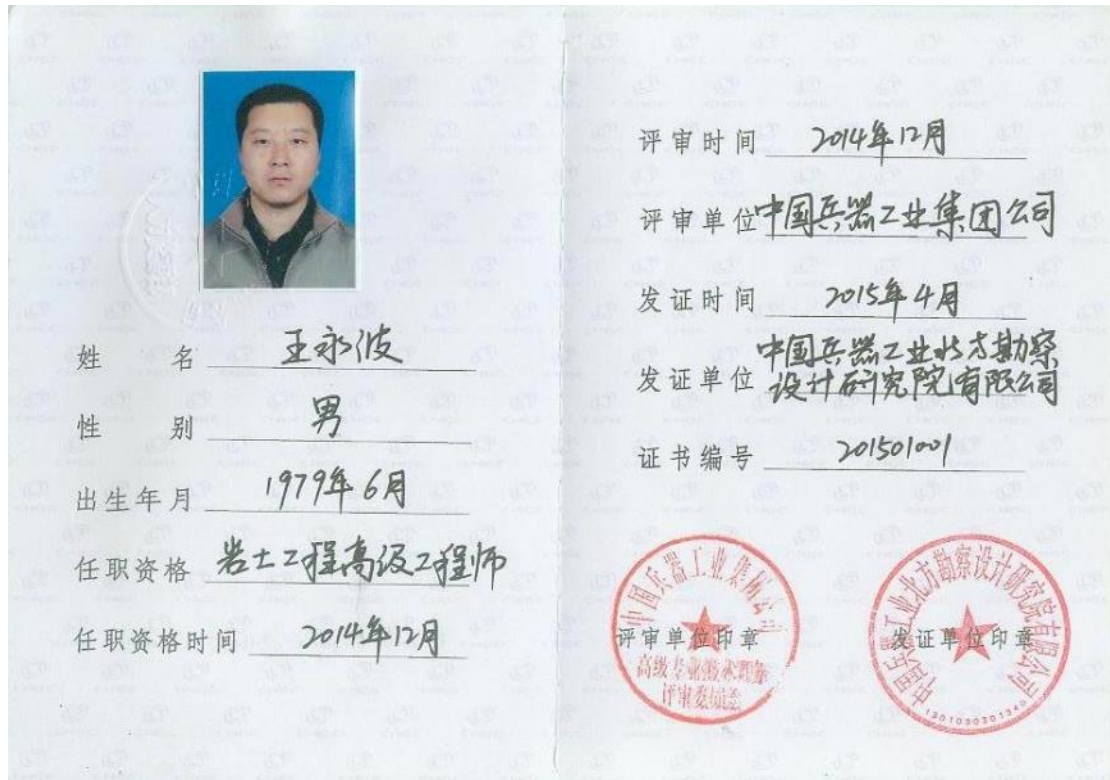 姓名 王永波
性别 男
出生年月 1979年6月
任职资格 岩土工程高级工程师
任职资格时间 2014年12月
评审时间 2014年12月
评审单位 中国兵器工业集团公司
发证时间 2015年4月
发证单位 中国兵器工业北方勘察
设计研究院有限公司
证书编号 201501001
中国兵器工业集团公司
评审单位印章
高级专业技术职务
评审委员会
中国兵器工业北方勘察设计研究院有限公司
发证单位印章
1301030301340